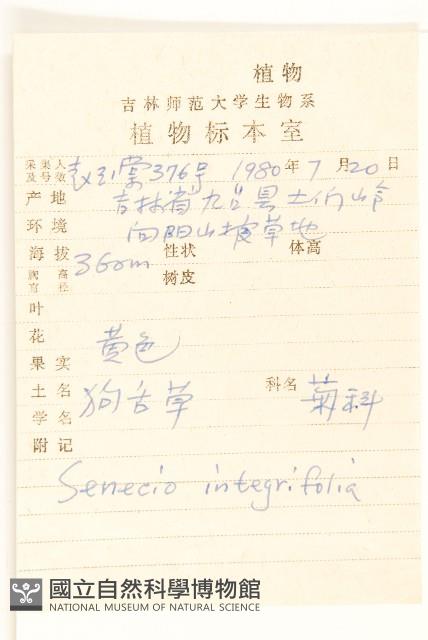 植物
吉林师范大学生物系
植物标本室
采集人及号数 376号 1980年7月20日
产地 吉林省九台县土们岭
环境 向阳山坡草地
海拔 360m 性状 体高
胸高直径 树皮
叶
花 黄色
果实
土名 狗舌草 科名 菊科
学名
附记
Senecio integrifolia
國立自然科學博物館
NATIONAL MUSEUM OF NATURAL SCIENCE